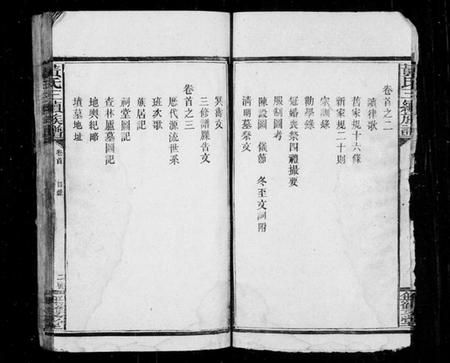 卷首之二
讀律歌
舊家規十六條
新家規二十則
家訓錄
勸學錄
冠婚喪祭四禮撮要
服制圖考
陳設圖 儀節 冬至文詞附
清明墓祭文
冥薦文
三修譜厰告文
卷首之三
歷代源流世系
班次歌
族居記
祠堂圖記
查林廬墓圖記
地輿紀略
墳墓地址
黃氏三續族譜
卷首 目錄